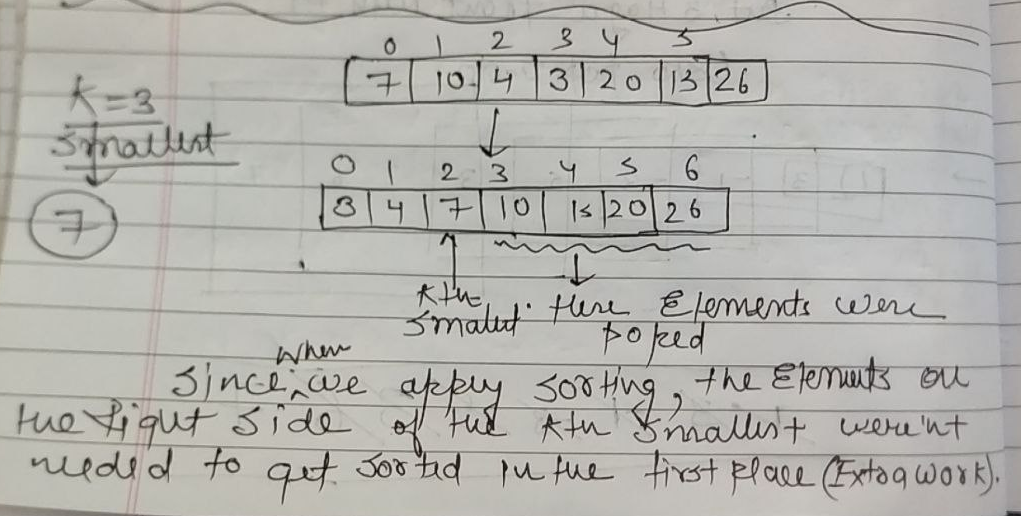 0 1 2 3 4 5
7 10 4 3 20 15 26
K=3
Smallest
0 1 2 3 4 5 6
3 4 7 10 15 20 26
7
Kth
Smallest
These Elements were
poped
when
Since, we apply sorting, the Elements on
the right side of the Kth Smallest weren't
needed to get sorted in the first place (Extra work).